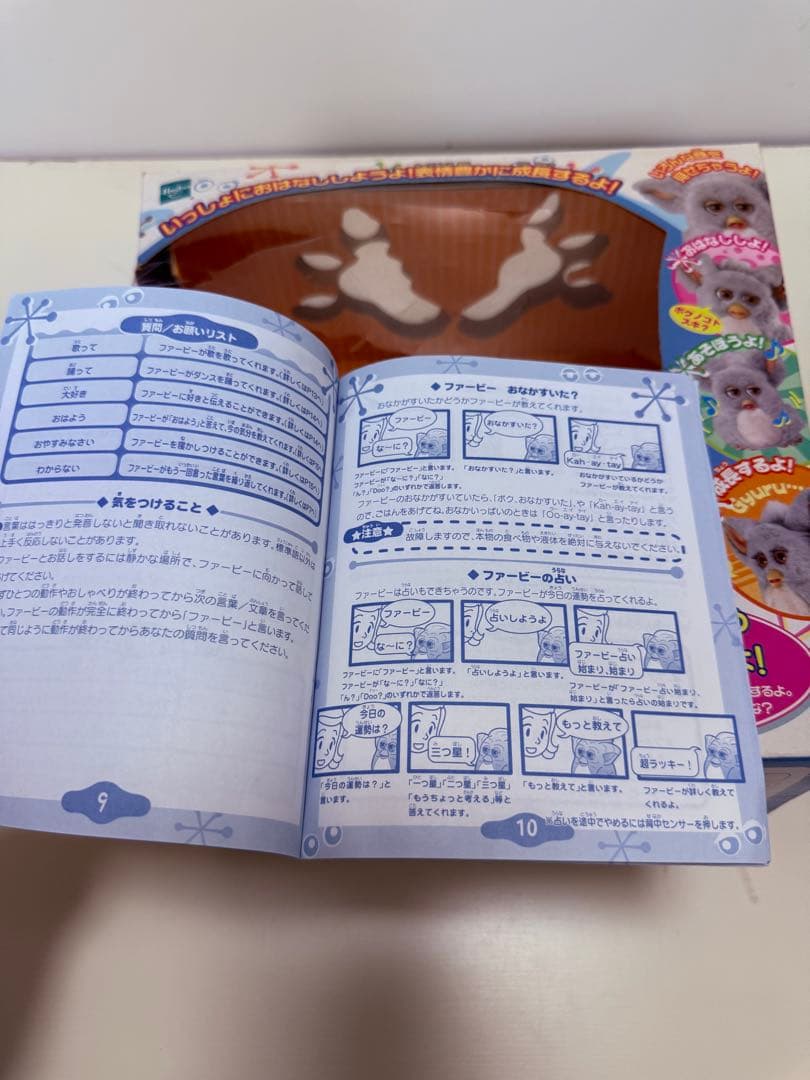 いっしょにおはなししようよ!表情豊かに成長するよ!
見せちゃうよ!
おはなししよ!
ボクノコト
スキ?
あそぼうよ!
成長するよ!
よ!
質問/お願いリスト
歌って
ファービーが歌を歌ってくれます。(詳しくはP13へ)
踊って
ファービーがダンスを踊ってくれます。(詳しくはP14へ)
大好き
ファービーに好きと伝えることができます。
おはよう
ファービーが「おはよう」と答えて、今の気分を教えてくれます。
おやすみなさい
ファービーを寝かしつけることができます。
わからない
ファービーがもう一回言った言葉を繰り返してくれます。
◆ 気をつけること ◆
●言葉ははっきりと発音しないと聞き取れないことがあります。標準語以外は
上手く反応しないことがあります。
ファービーとお話しをするには静かな場所で、ファービーに向かって話して
あげてください。
ずひとつの動作やおしゃべりが終わってから次の言葉/文章を言ってくだ
。ファービーの動作が完全に終わってから「ファービー」と言います。
て同じように動作が終わってからあなたの質問を言ってください。
9
◆ ファービー おなかすいた? ◆
おなかがすいたかどうかファービーが教えてくれます。
ファービー
な~に?
おなかすいた?
Kah-ay-tay
ファービーに「ファービー」と言います。
ファービーが「な~に?」「なに?」
「ん?」「Doo?」のいずれかで返答します。
「おなかすいた?」と言います。
おなかすいているかどうか
ファービーが教えてくれます。
ファービーのおなかがすいていたら、「ボク、おなかすいた」や「Kah-ay-tay」と言う
ので、ごはんをあげてね。おなかいっぱいのときは「Oo-ay-tay」と言ったりします。
★注意★
故障しますので、本物の食べ物や液体を絶対に与えないでください。
◆ ファービーの占い ◆
ファービーは占いもできちゃうのです。ファービーが今日の運勢を占ってくれるよ。
ファービー
な~に?
占いしようよ
ファービー占い
始まり、始まり
ファービーに「ファービー」と言います。
ファービーが「な~に?」「なに?」
「ん?」「Doo?」のいずれかで返答します。
「占いしようよ」と言います。
ファービーが「ファービー占い始まり、
始まり」と言ったら占いの始まりです。
今日の
運勢は?
三つ星!
もっと教えて
超ラッキー!
「今日の運勢は?」と
言います。
「一つ星」「二つ星」「三つ星」
「もうちょっと考える」等と
答えてくれます。
「もっと教えて」と言います。
ファービーが詳しく教えて
くれるよ。
※占いを途中でやめるには背中センサーを押します。
10